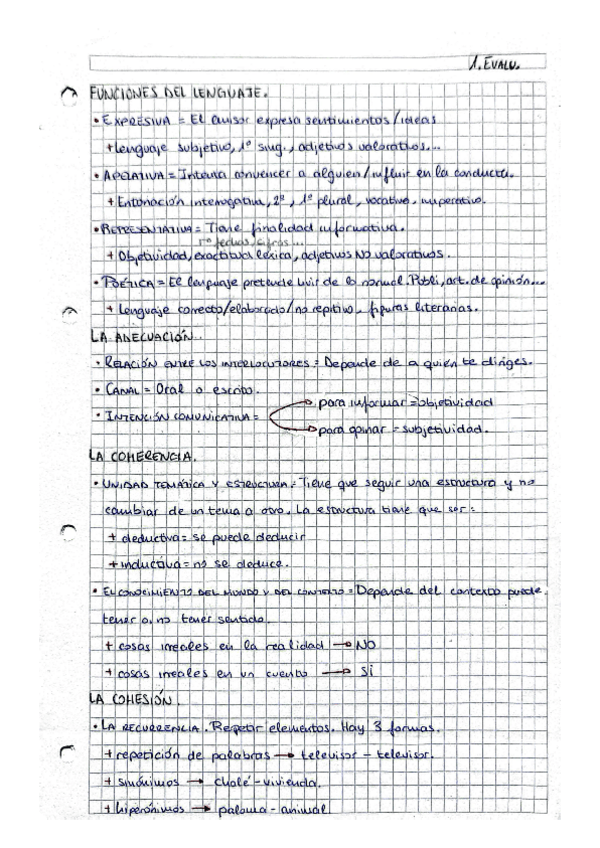 1. EVALU.
FUNCIONES DEL LENGUAJE.
• EXPRESIVA = El emisor expresa sentimientos/ideas
+ Lenguaje subjetivo, 1º sing., adjetivos valorativos...
• APELATIVA = Intenta convencer a alguien/influir en la conducta.
+ Entonación interrogativa, 2ª, 1ª plural, vocativo, imperativo.
• REPRESENTATIVA = Tiene finalidad informativa.
fechas, cifras...
+ Objetividad, exactitud léxica, adjetivos NO valorativos.
• POÉTICA = El lenguaje pretende huir de lo normal. Publi, art. de opinión...
+ Lenguaje correcto/elaborado/no repitivo, figuras literarias.
LA ADECUACIÓN.
• RELACIÓN ENTRE LOS INTERLOCUTORES = Depende de a quién te diriges.
• CANAL = Oral o escrito.
para informar = objetividad
• INTENCIÓN COMUNICATIVA =
para opinar = subjetividad.
LA COHERENCIA.
• UNIDAD TEMÁTICA Y ESTRUCTURA = Tiene que seguir una estructura y no
cambiar de un tema a otro. La estructura tiene que ser:
+ deductiva = se puede deducir
+ inductiva = no se deduce.
• EL CONOCIMIENTO DEL MUNDO Y DEL CONTEXTO = Depende del contexto puede
tener o no tener sentido.
+ cosas irreales en la realidad → NO
+ cosas irreales en un cuento → SÍ
LA COHESIÓN.
• LA RECURRENCIA. Repetir elementos. Hay 3 formas.
+ repetición de palabras → televisor - televisor.
+ sinónimos → chalé - vivienda.
+ hiperónimos → paloma - animal